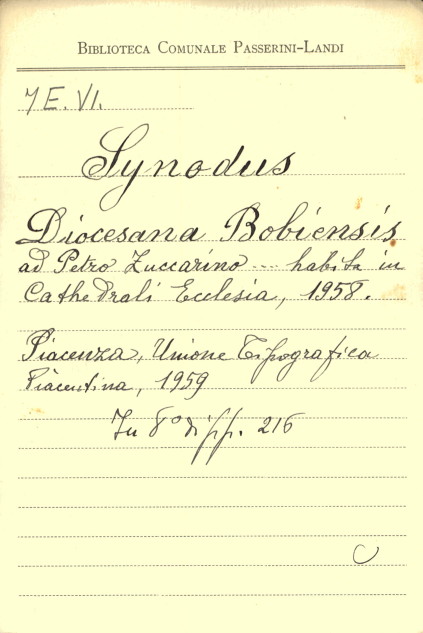 BIBLIOTECA COMUNALE PASSERINI-LANDI
7 E. VI.
Synodus
Diocesana Bobiensis
ad Petro Zuccarino --- habita in
Cathedrali Ecclesia, 1958.
Piacenza, Unione Tipografica
Piacentina, 1959
In 8° di pp. 216
C